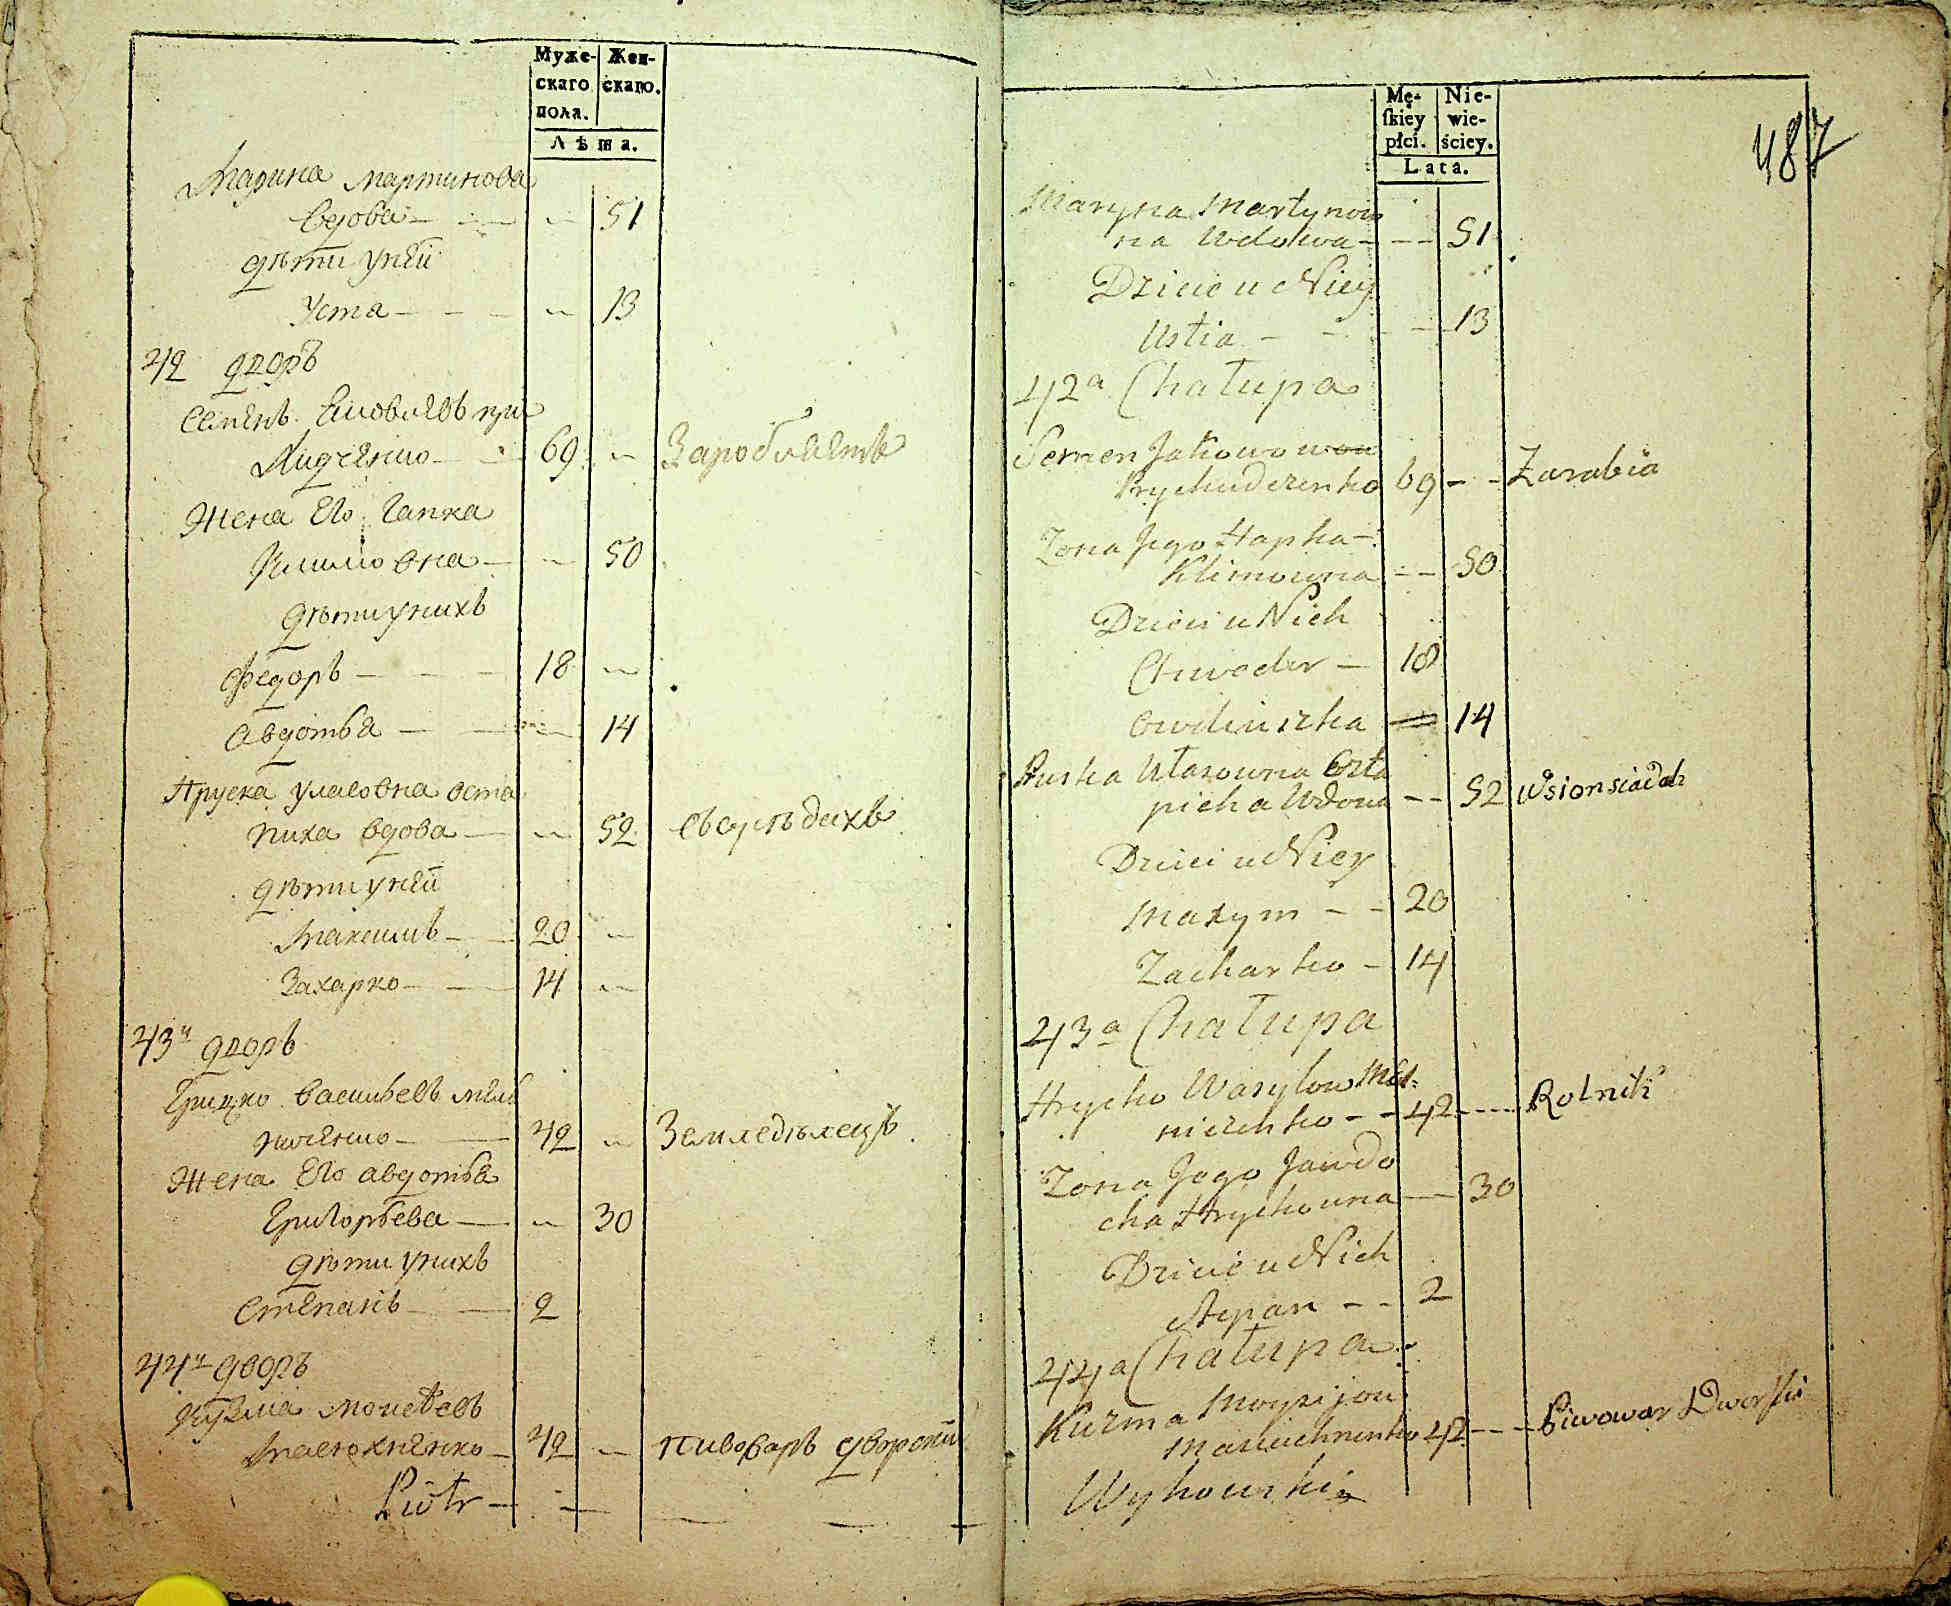 Муже-
скаго
пола.
Жен-
скаго.
Лѣта.
Марина Мартинова
вдова — — 51
дѣти у ней
Уста — — — 13
42 дворъ
Семенъ Яковлевъ при
худченко — 69 — Заробляетъ
Жена Его Гапка
Климовна — — 50
дѣти у нихъ
Федоръ — — — 18 —
Авдотья — — — 14
Пруска Уласовна Оста
пиха вдова — — 52 въ сусѣдахъ
дѣти у ней
Максимъ — — 20 —
Захарко — — 14 —
43й дворъ
Грицко Васильевъ мель
ниченко — — 42 — Земледѣлецъ
Жена Его Авдотья
Григорьева — — 30
дѣти у нихъ
Степанъ — — 2
44й дворъ
Кузма Моисеевъ
Масюхненко — 42 — пивоваръ дворский
Piotr — — — — —
487
Mę-
ſkiey
płci.
Nie-
wie-
ściey.
Lata.
Maryna Martynow
na Wdowa — — 51
Dzieci u Niey
Ustia — — — 13
42a Chałupa
Semen Jakowow
Prychudczenko 69 — — Zarabia
Zona Jego Hapka
Klimowna — — 50
Dzieci u Nich
Chwedor — 18
Owdiuszka — 14
Pruska Ułasowna Osta
picha Wdowa — — 52 w Sionsiadach
Dzieci u Niey
Maxym — — 20
Zacharko — 14
43a Chałupa
Hrycko Wasylow Mel-
niczenko — — 42 — — Rolnik
Zona Jego Jawdo
cha Hryckowna — 30
Dzieci u Nich
Stepan — — 2
44a Chałupa
Kuzma Moysijow
Masiuchnenko 42 — — Piwowar Dworski
Wyhowski